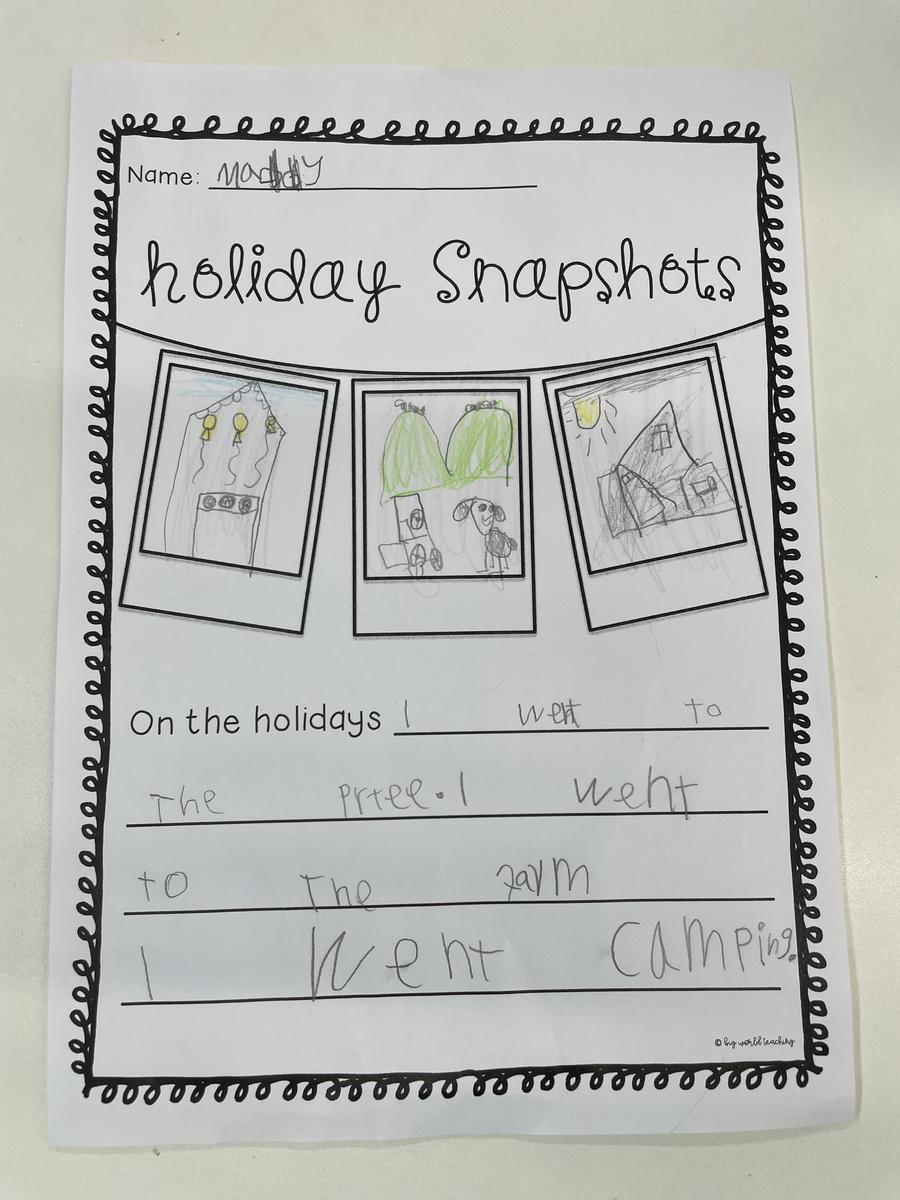 Name: Maddy
holiday Snapshots
On the holidays I went to
The Prtee. I went
to The farm
I went camping.
© big world teaching